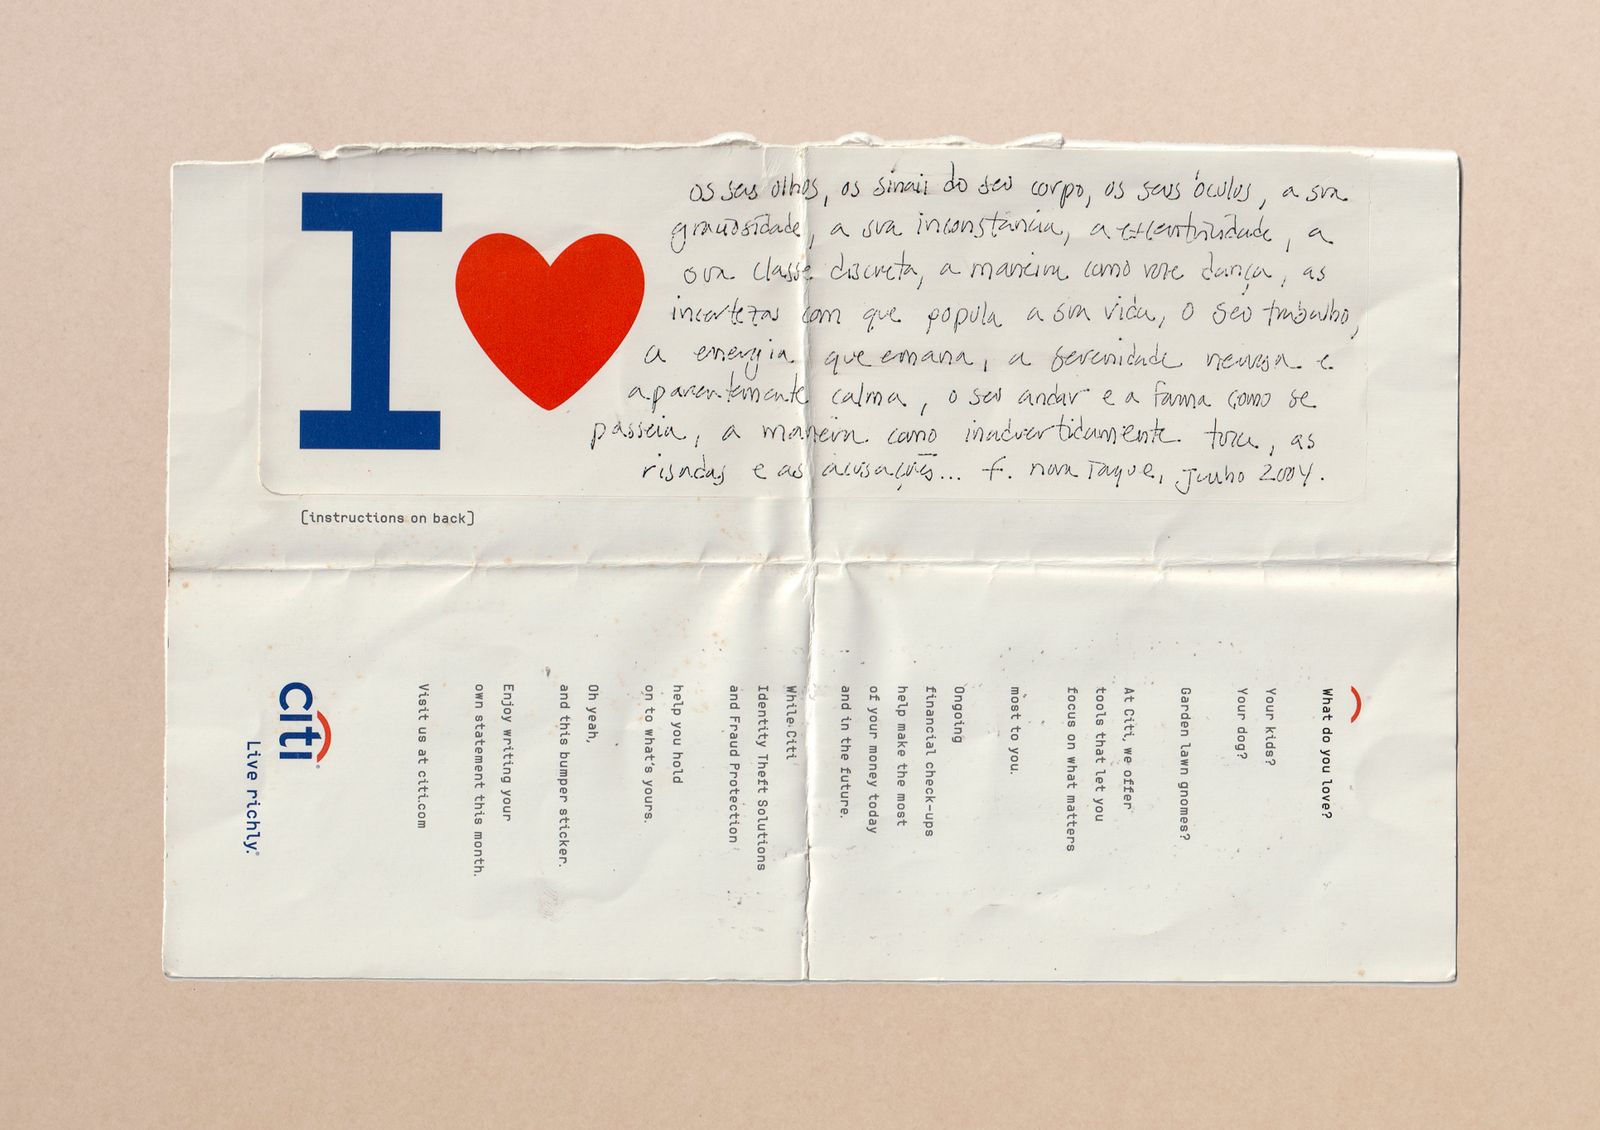 I
os seus olhos, os sinais do seu corpo, os seus óculos, a sua
graciosidade, a sua inconstância, a excentricidade, a
sua classe discreta, a maneira como você dança, as
incertezas com que popula a sua vida, o seu trabalho,
a energia que emana, a serenidade nervosa e
aparentemente calma, o seu andar e a forma como se
passeia, a maneira como inadvertidamente toca, as
risadas e as acusações... f. nova Iorque, junho 2004.
[instructions on back]
What do you love?
Your kids?
Your dog?
Garden lawn gnomes?
At Citi, we offer
tools that let you
focus on what matters
most to you.
Ongoing
financial check-ups
help make the most
of your money today
and in the future.
While Citi
Identity Theft Solutions
and Fraud Protection
help you hold
on to what's yours.
Oh yeah,
and this bumper sticker.
Enjoy writing your
own statement this month.
Visit us at citi.com
citi®
Live richly.®